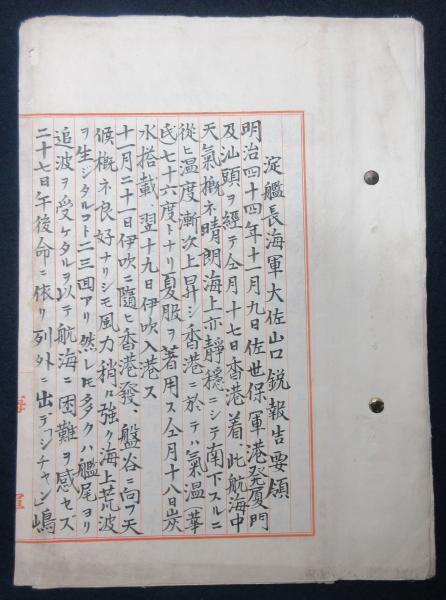 淀艦長海軍大佐山口鋭報告要領
明治四十四年十一月九日佐世保軍港発厦門
及汕頭ヲ経テ仝月十七日香港着、此航海中
天氣概ネ晴朗海上亦静穏ニシテ南下スルニ
從ヒ温度漸次上昇シ香港ニ於テハ氣温華
氏七十六度トナリ夏服ヲ著用ス仝月十八日炭
水搭載、翌十九日伊吹入港ス
十一月二十一日伊吹ニ隨ヒ香港發、盤谷ニ向フ天
候概ネ良好ナリシモ風力稍々強ク海上荒波
ヲ生ジタルコト二三回アリ然レ𪜈多クハ艦尾ヨリ
追波ヲ受ケタルヲ以テ航海ニ困難ヲ感セズ
二十七日午後命ニ依リ列外ニ出デコシチャン嶋
海軍